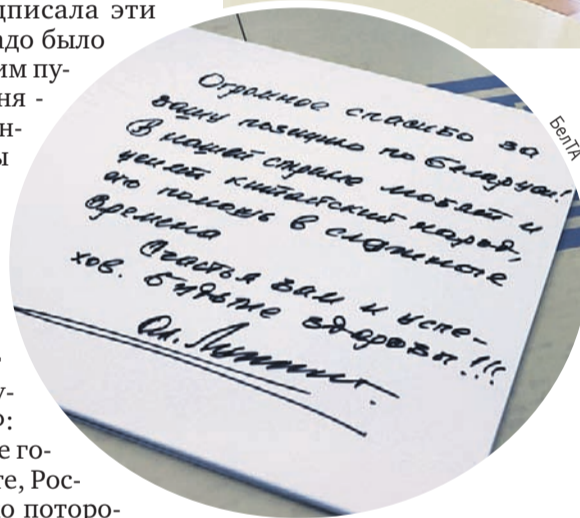 дписала эти
адо было
им пу-
ня -
ен-
ы
у-
е го-
те, Рос-
о поторо-
Огромное спасибо за
вашу позицию по Беларуси!
В нашей стране любят и
ценят китайский народ,
его помощь в сложные
времена
Счастья вам и успе-
хов. Будьте здоровы!!!
Ал.
БелТА